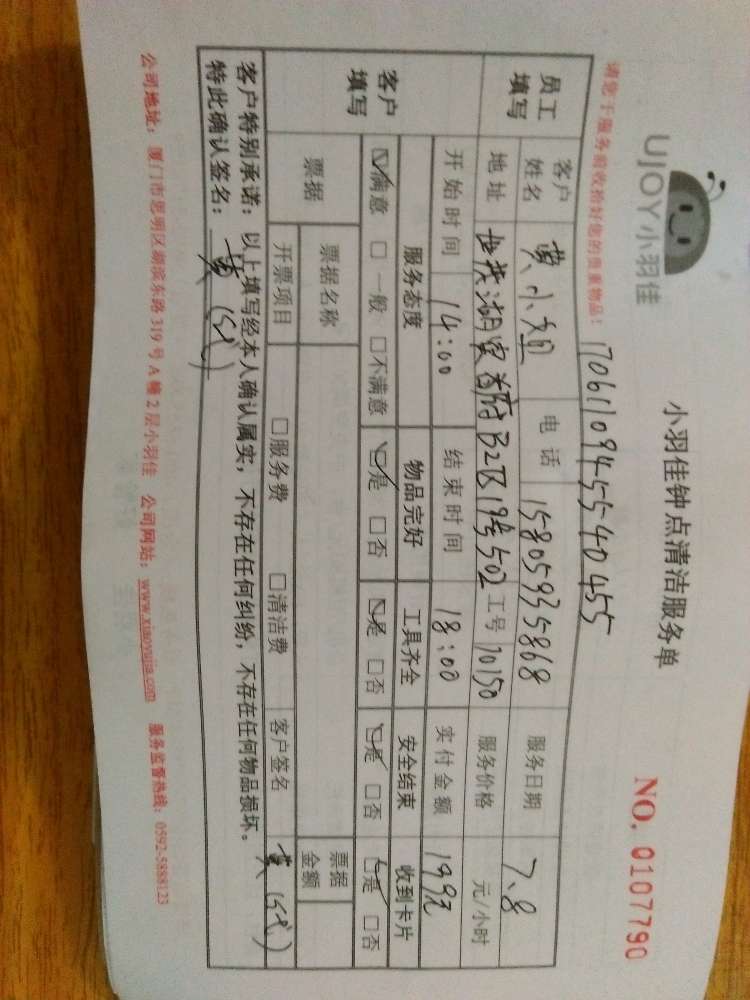 UJOY小羽佳
小羽佳钟点清洁服务单
NO. 0107790
请您于服务前收拾好您的贵重物品!
17061109455540455
员工填写 客户姓名 黄小姐 电话 15805935868 服务日期 7.8
地址 B2区19号502 工号 10150 服务价格 元/小时
开始时间 14:00 结束时间 18:00 实付金额 199元
客户填写 服务态度 物品完好 工具齐全 安全结束 收到卡片
☑满意 □一般 □不满意 ☑是 □否 ☑是 □否 ☑是 □否 ☑是 □否
票据 票据名称 票据金额
开票项目 □服务费 □清洁费 客户签名 黄
客户特别承诺:以上填写经本人确认属实,不存在任何纠纷,不存在任何物品损坏。
特此确认签名: 黄
公司地址:厦门市思明区湖滨东路319号A幢2层小羽佳 公司网站:www.xiaoyujia.com 服务监督热线:0592-5888123